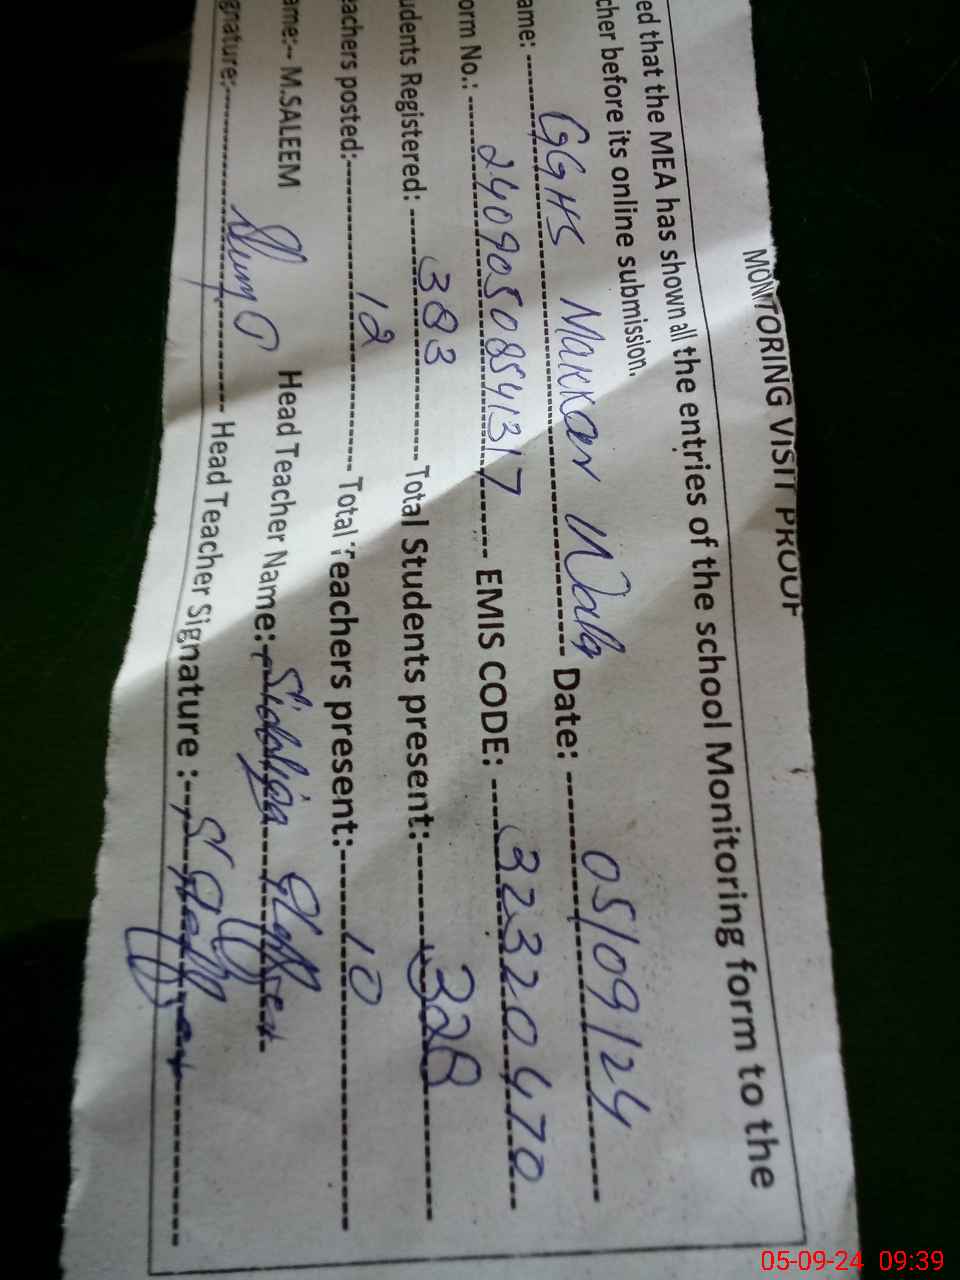 MONITORING VISIT PROOF
ed that the MEA has shown all the entries of the school Monitoring form to the
cher before its online submission.
ame: GGHS Makkar Wala Date: 05/09/24
orm No.: 24090508541317 EMIS CODE: 32320470
udents Registered: 383 Total Students present: 328
eachers posted: 12 Total Teachers present: 10
ame:- M.SALEEM Head Teacher Name:
gnature: Head Teacher Signature :
05-09-24 09:39